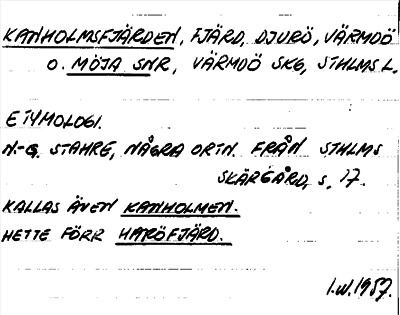 KANHOLMSFJÄRDEN, FJÄRD, DJURÖ, VÄRMDÖ
O. MÖJA SNR, VÄRMDÖ SKG, STHLMS L.
ETYMOLOGI.
N.-G. STAHRE, NÅGRA ORTN. FRÅN STHLMS
SKÄRGÅRD, S, 17.
KALLAS ÄVEN KANHOLMEN.
HETTE FÖRR HARÖFJÄRD.
I.W.1957.